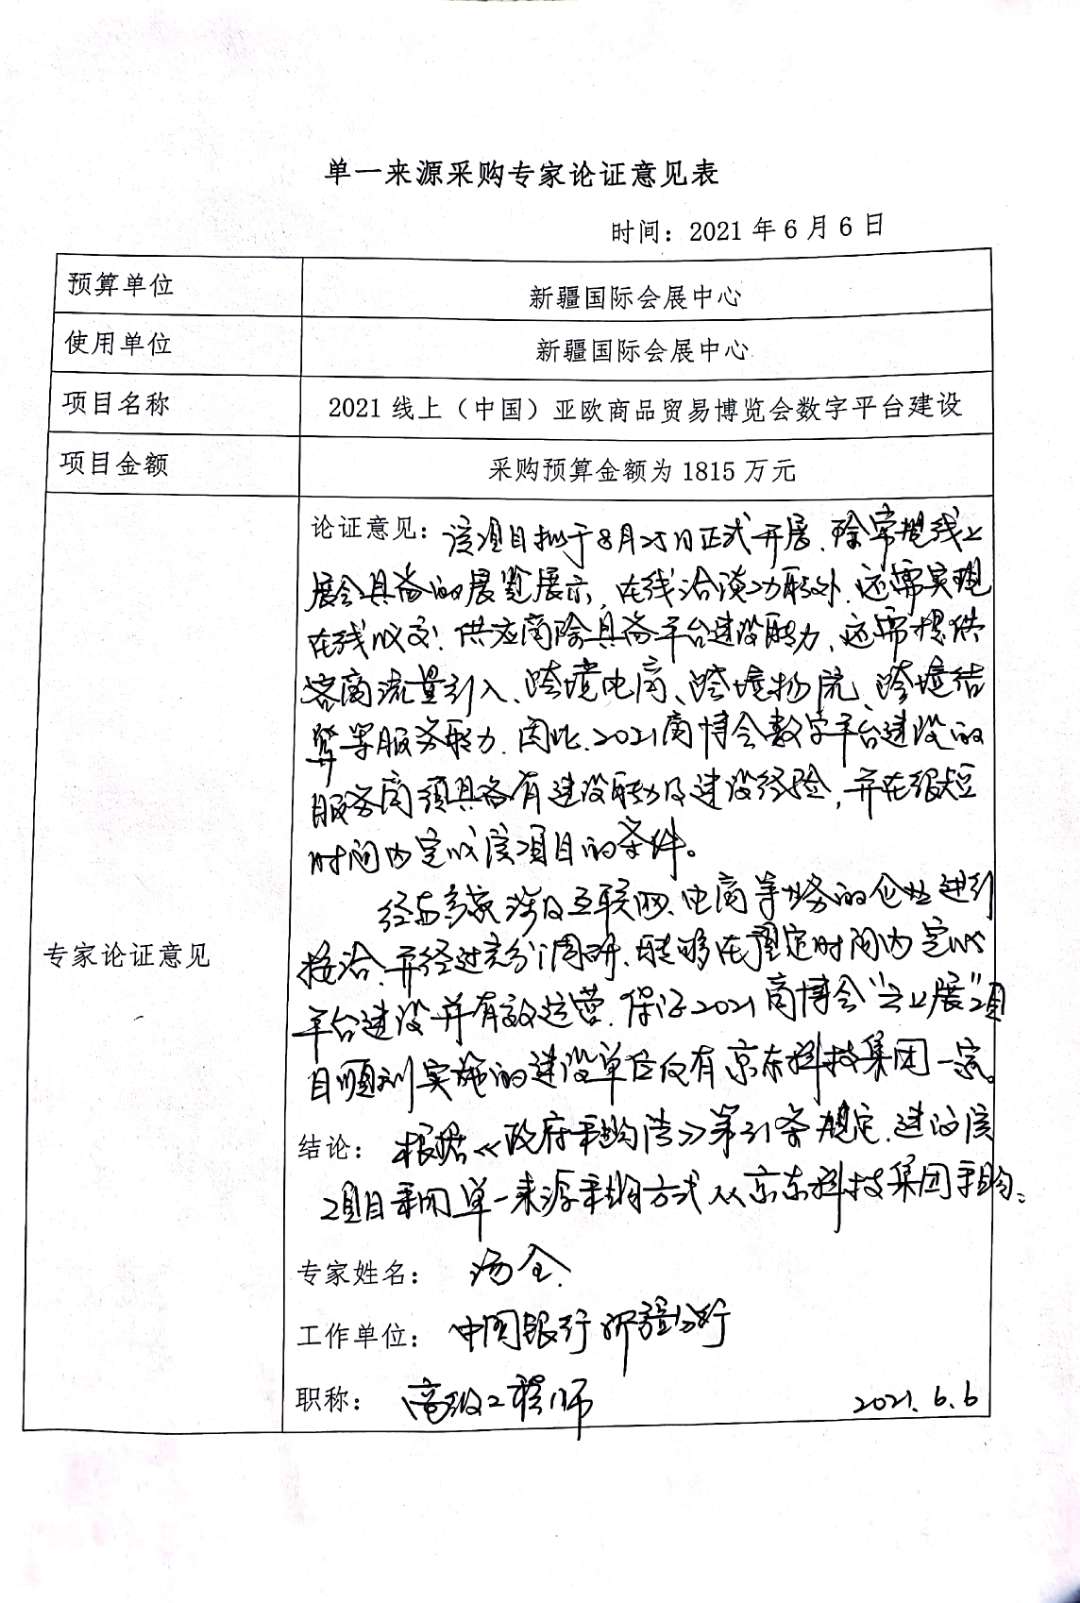 单一来源采购专家论证意见表
时间：2021年6月6日
预算单位 新疆国际会展中心
使用单位 新疆国际会展中心
项目名称 2021线上（中国）亚欧商品贸易博览会数字平台建设
项目金额 采购预算金额为1815万元
专家论证意见
论证意见：该项目拟于8月25日正式开展，除常规线上
展会具备的展览展示，在线洽谈功能外，还需实现
在线成交！供应商除具备平台建设能力，还需提供
客商流量引入、跨境电商、跨境物流、跨境结
算等服务能力，因此，2021商博会数字平台建设的
服务商须具备有建设能力及建设经验，并在很短
时间内完成该项目的条件。
经与多家涉及互联网、电商等业务的企业进行
接洽，并经过充分调研，能够在预定时间内完成
平台建设并有效运营，保证2021商博会“云上展”项
目顺利实施的建设单位仅有京东科技集团一家。
结论：根据《政府采购法》第31条规定，建议该
项目采用单一来源采购方式从京东科技集团采购。
专家姓名：汤全
工作单位：中国银行新疆分行
职称：高级工程师 2021.6.6